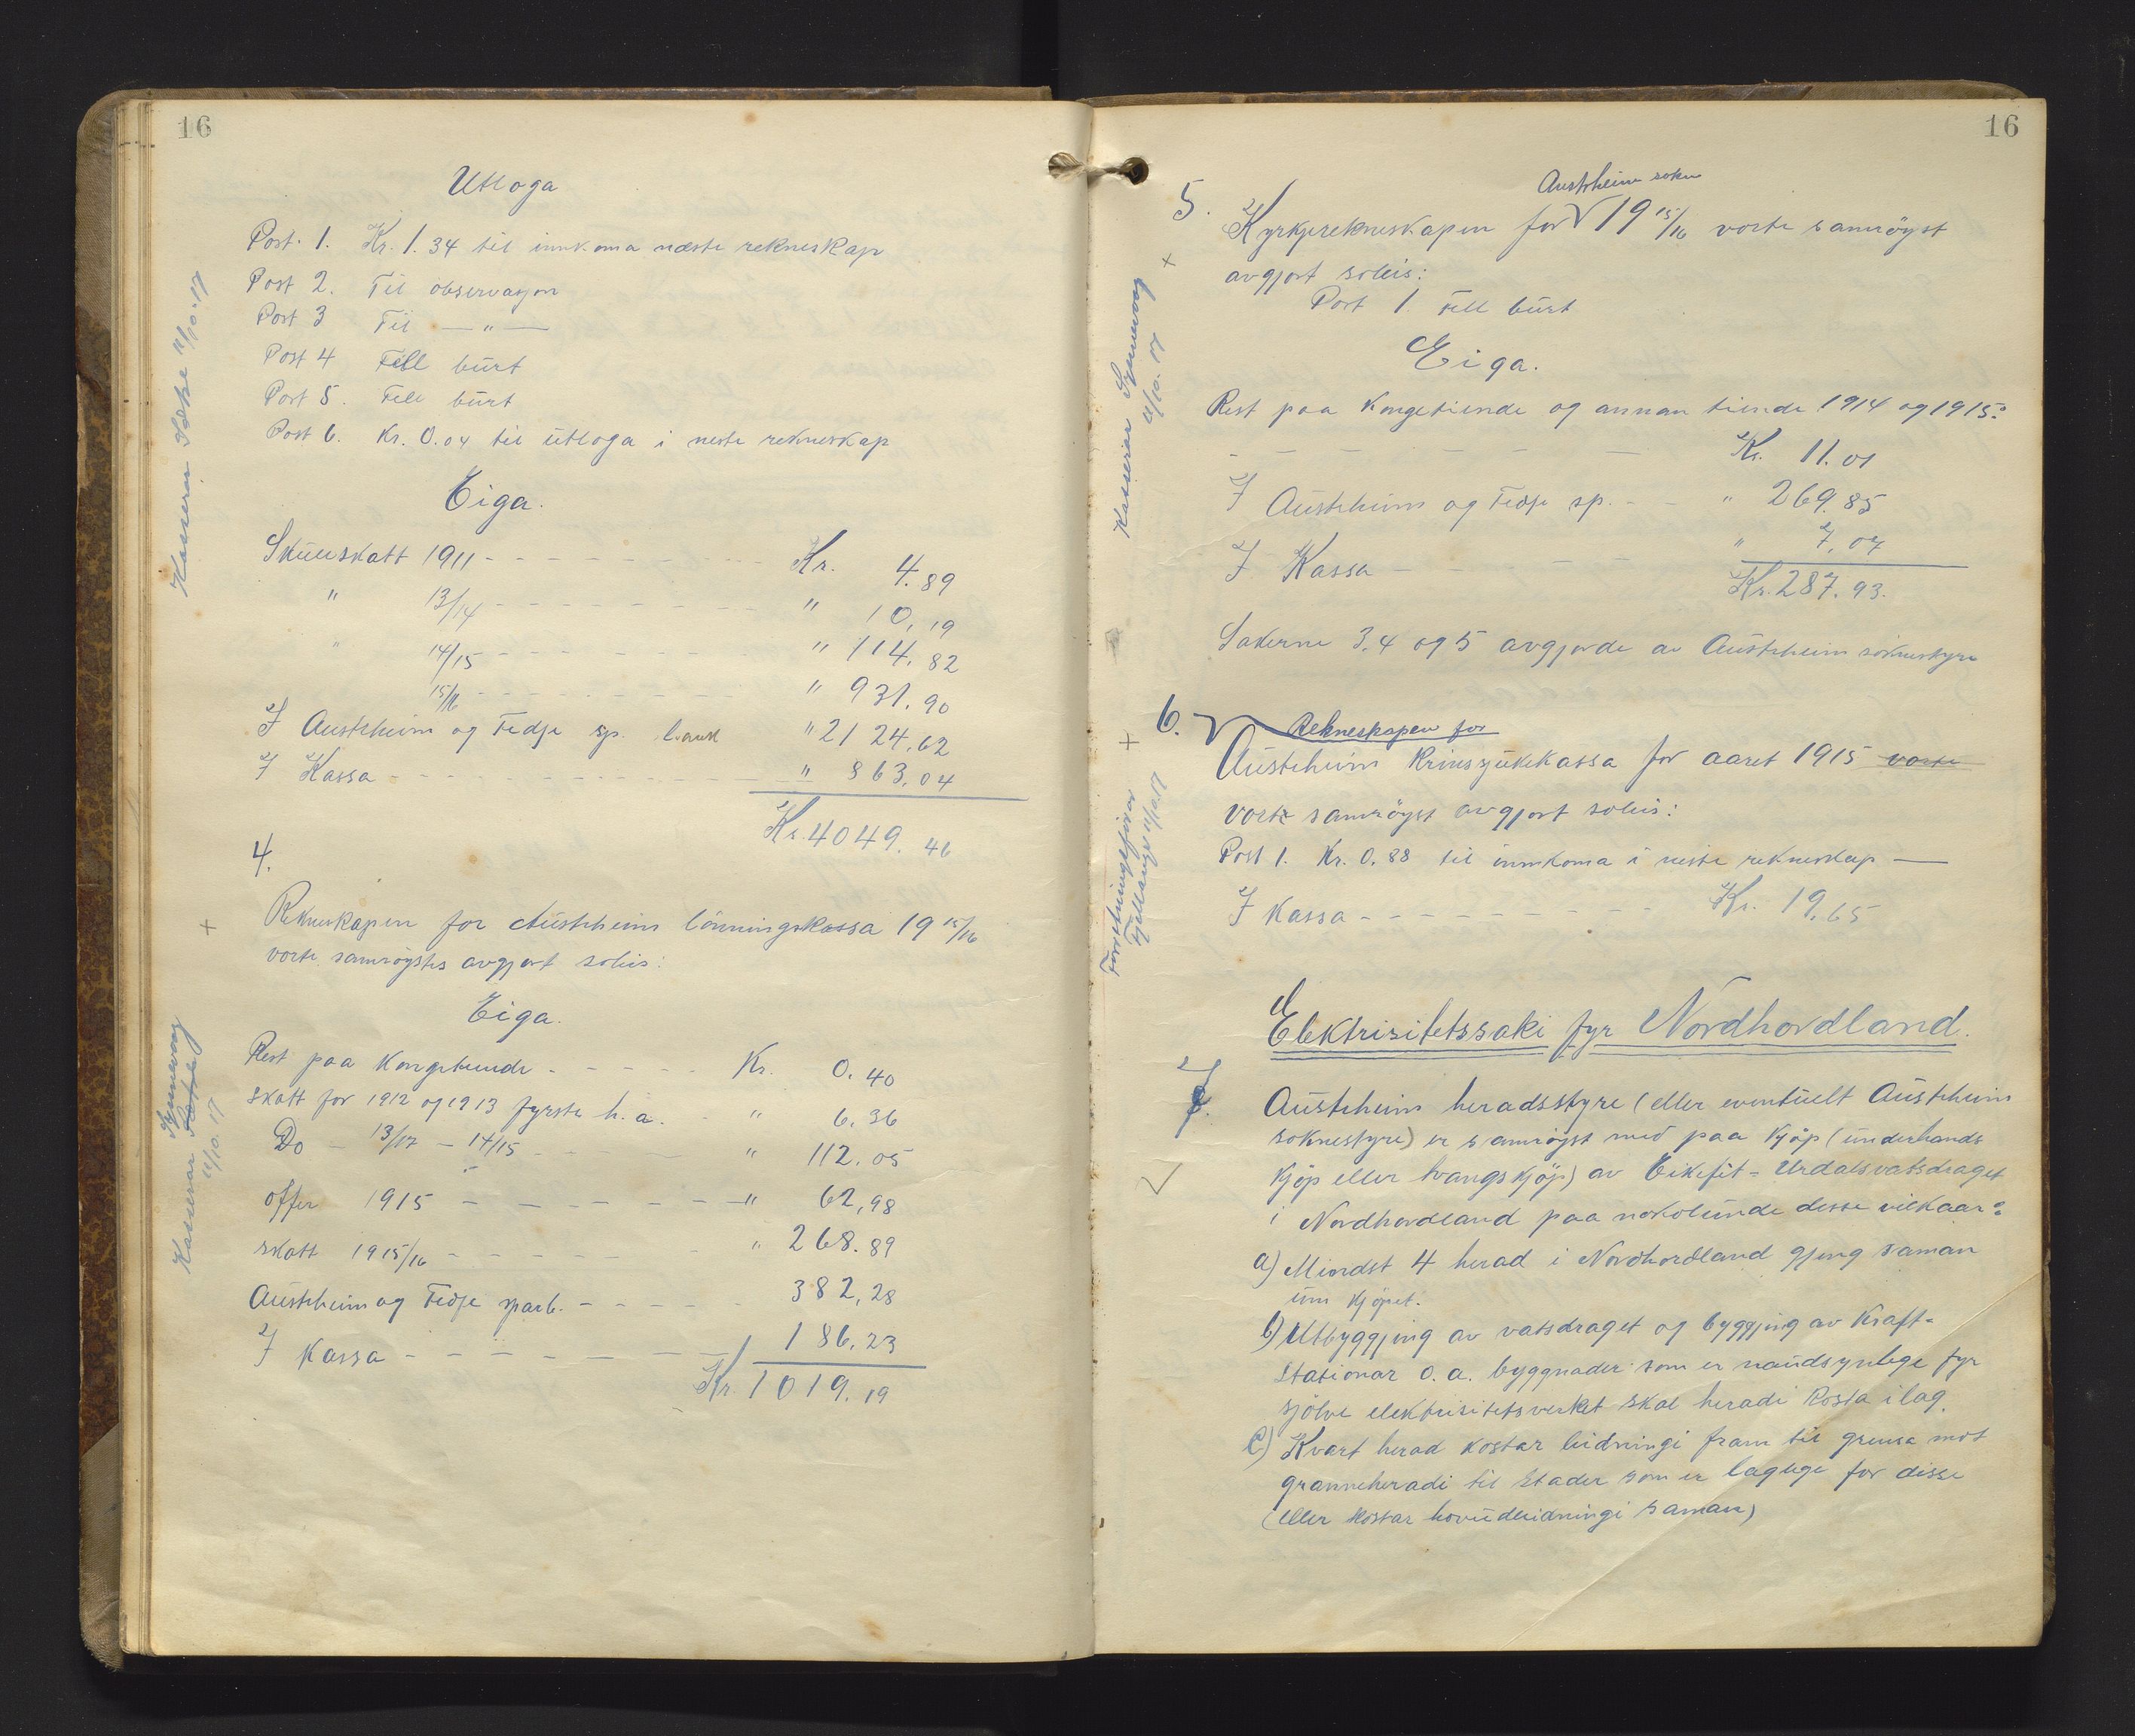 16
Utloga
Post. 1. Kr. 1.34 til innkoma næste rekneskap
Post 2. Til observasjon
Post 3 Til — " —
Post 4 Fell burt
Post 5. Fell burt
Post 6. Kr. 0.04 til utloga i neste rekneskap
Eiga.
Skuleskatt 1911 - - - - - - - - Kr. 4.89
" 13/14 - - - - - - - - " 10,19
" 14/15 - - - - - - - - " 114,82
15/16 - - - - - - - - " 931.90
I Austrheim og Fedje sp. bank " 2124,62
I Kassa - - - - - - - - " 863,04
Kr. 4049.46
4.
Rekneskapen for Austrheim lönningskassa 19 15/16
vorte samröystes avgjort soleis:
Eiga.
Rest paa Kongetiende - - - - - Kr. 0.40
Skatt for 1912 og 1913 fyrste h.a. - " 6.36
Do — 13/14 — 14/15 - - - - - " 112.05
Offer 1915 - - - - - - - " 62,98
Skatt 1915/16 - - - - - - " 268.89
Austrheim og Fedje sparb. - - - - - 382,28
I Kassa - - - - - - - 186.23
Kr. 1019.19
Kasserar 11/10.17
Kasserar Synnevaag
11/10.17
16
5. Kyrkjerekneskapen for Austrheim sokn 19 15/16 vorte samröyst
avgjort soleis:
Post 1. Fell burt
Eiga.
Rest paa Kongetiende og annan tiende 1914 og 1915:
- - - - - - - Kr. 11.01
I Austrheim og Fedje sp. - - " 269.85
I Kassa - - - - - " 7,07
Kr. 287.93.
Sakerne 3,4 og 5 avgjorde av Austrheim soknestyre
6. Rekneskapen for
Austrheim Krinssjukekassa for aaret 1915 vorte
vorte samröyst avgjort soleis:
Post 1. Kr. 0.88 til innkoma i neste rekneskap —
I Kassa - - - - - - - - - Kr. 19.65
Kasserar Synnevaag
11/10.17
Forretningsförar
Fjellanger 11/10.17
Elektrisitetssaki fyr Nordhordland.
7. Austrheim heradsstyre (eller eventuelt Austrheim
soknestyre) er samröyst med paa kjöp (underhands
kjöp eller tvangskjöp) av Eikefit-Urdalsvatsdraget
i Nordhordland paa nokolunde desse vilkaar:
a) Mindst 4 herad i Nordhordland gjeng saman
um kjöpet.
b) Utbyggjing av vatsdraget og byggjing av Kraft-
stationar o. a. byggnader som er naudsynlege fyr
sjölve elektrisitetsverket skal heradi kosta ilag.
c) Kvart herad kostar leidningi fram til grensa mot
granneheradi til stader som er laglege for disse
(eller kostar hovudleidningi saman)